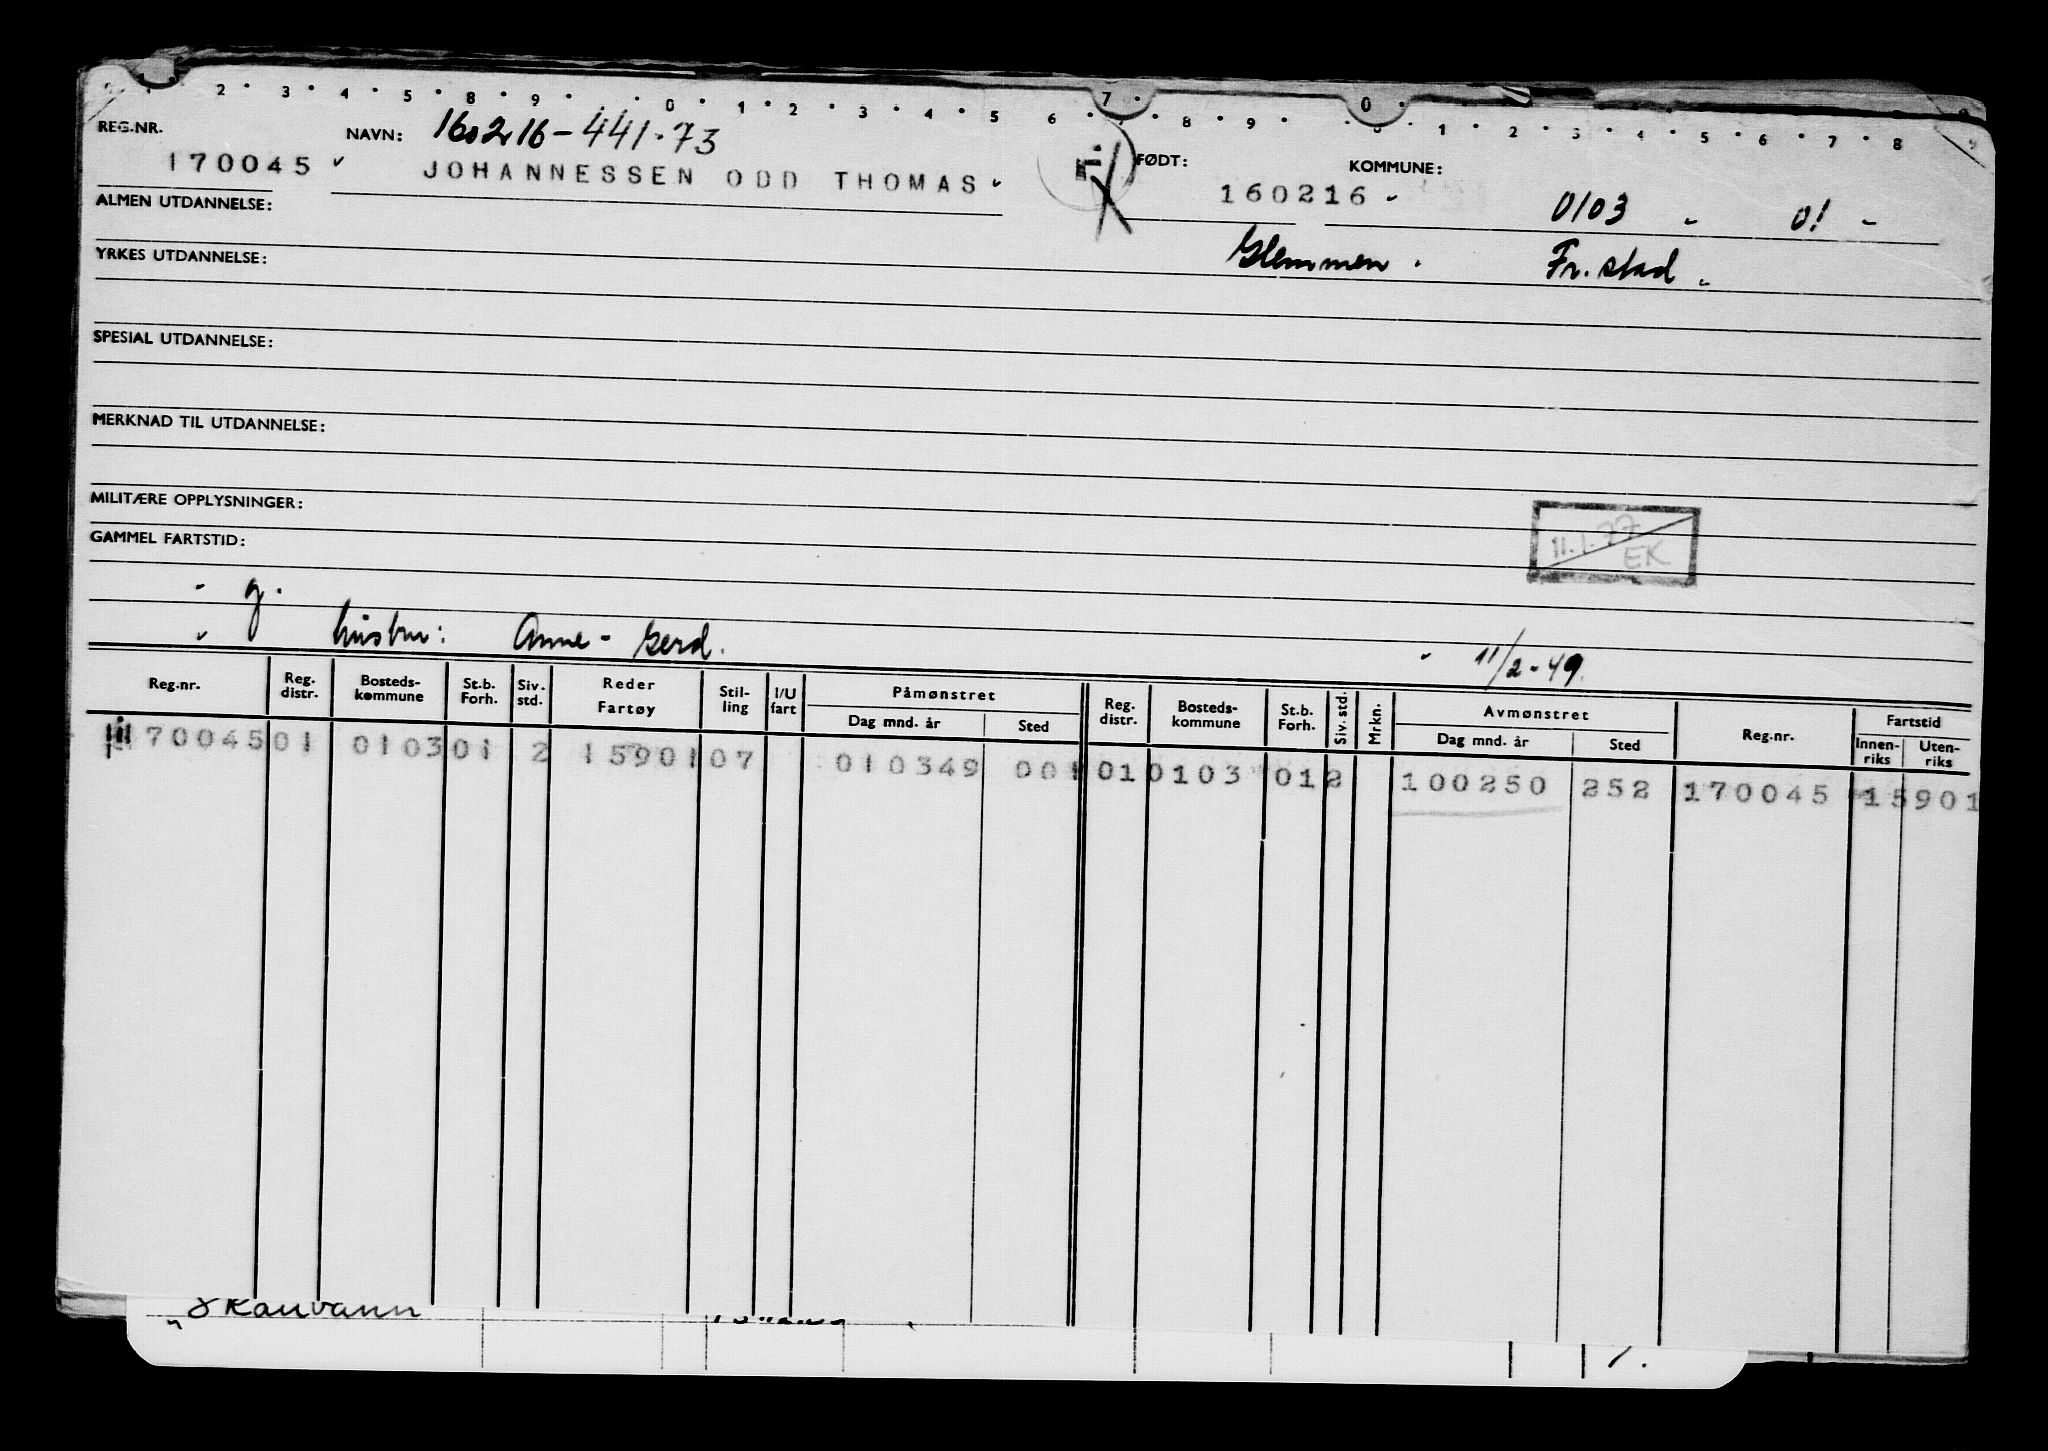 2 · 3 · 4 · 5 · 8 · 9 · · 0 · 1 · 2 · 3 · 4 · 5 6 · 7 · 8 · 9 · 0 · 1 · 2 · 3 · 4 · 5 · 6 · 7 · 8
REG.NR. NAVN: 160216-441.73 FØDT: KOMMUNE:
170045 JOHANNESSEN ODD THOMAS 160216 0103 01
ALMEN UTDANNELSE:
Glemmen. Fr. stad
YRKES UTDANNELSE:
SPESIAL UTDANNELSE:
MERKNAD TIL UTDANNELSE:
MILITÆRE OPPLYSNINGER:
11.1.77
EK
GAMMEL FARTSTID:
g.
hustru: Anne-Gerd. 11/2-49.
Reg.nr. Reg. distr. Bosteds-kommune St.b. Forh. Siv. std. Reder Fartøy Stil-ling I/U fart Påmønstret Dag mnd. år Sted Reg. distr. Bosteds-kommune St.b. Forh. Siv. std. Mrkn. Avmønstret Dag mnd. år Sted Reg.nr. Fartstid Innen-riks Uten-riks
170045 01 0103 01 2 15901 07 010349 001 01 0103 01 2 100250 252 170045 15901
Skauvann